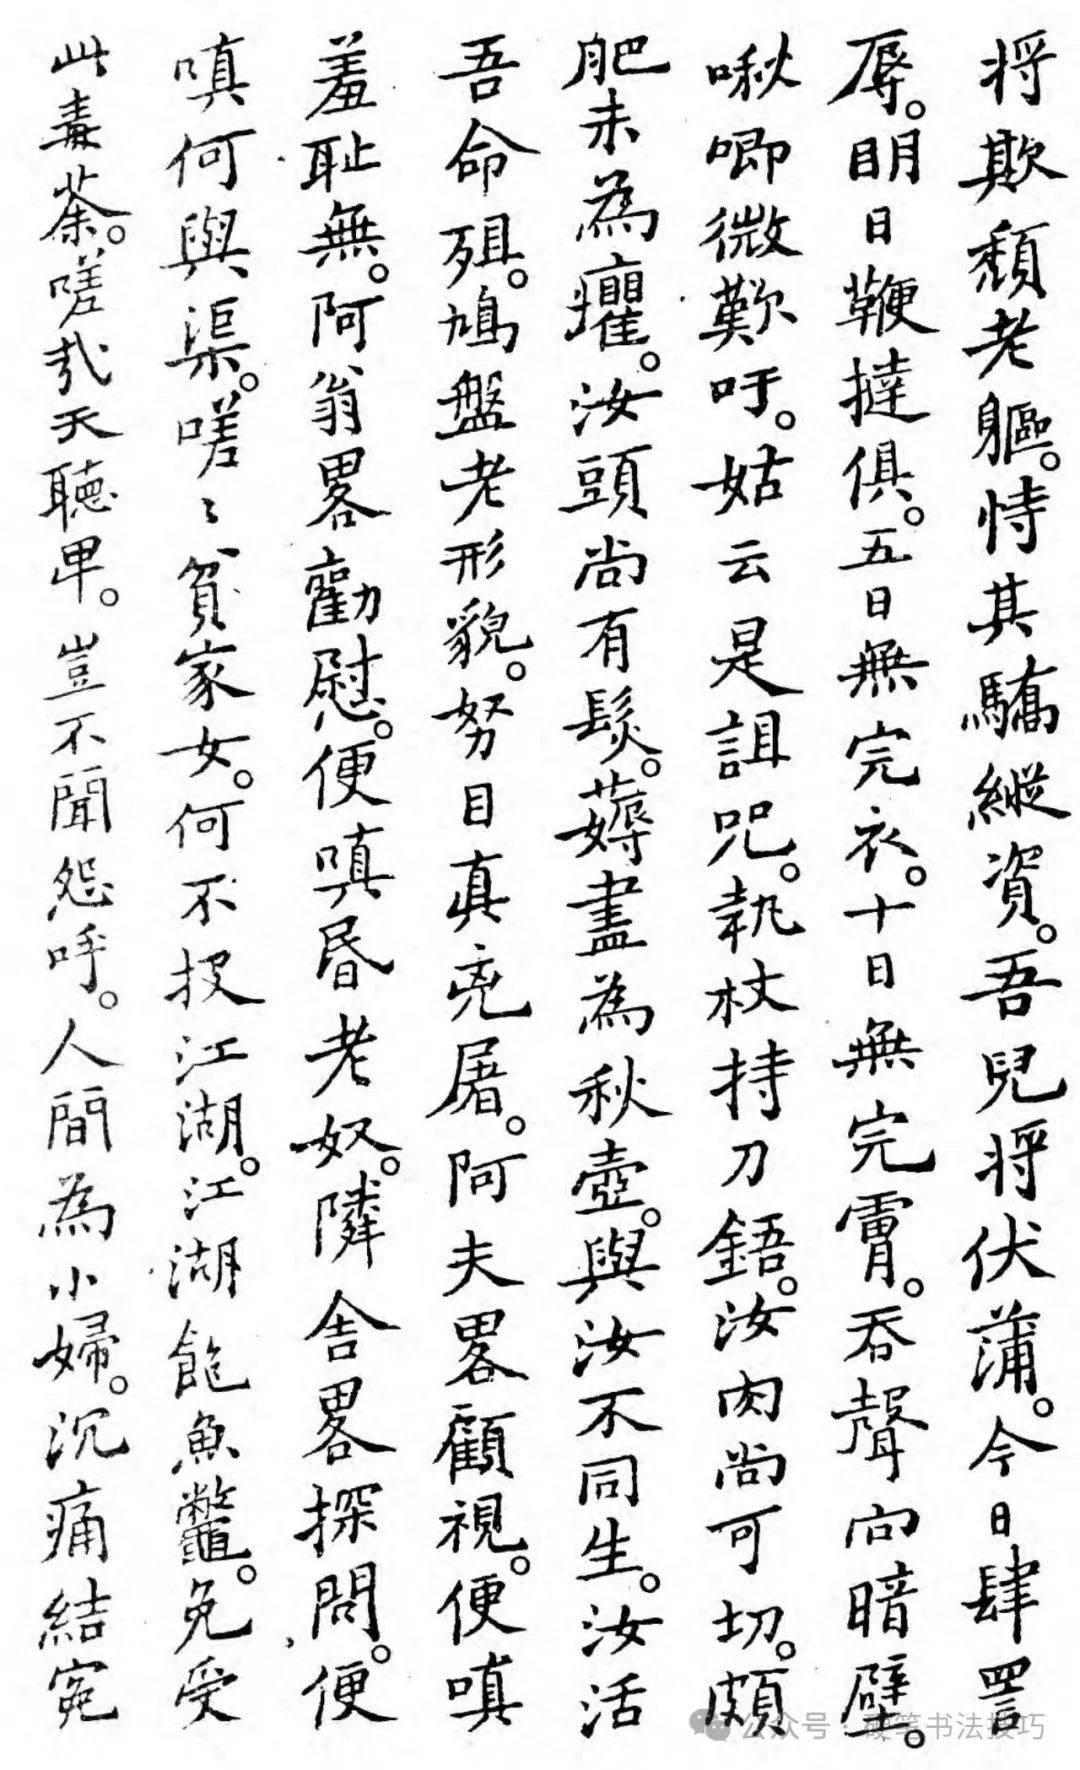 将欺頹老軀。恃其驕縱資。吾兒将伏蒲。今日肆詈
辱。明日鞭撻俱。五日無完衣。十日無完膚。吞聲向暗壁。
啾唧微歎吁。姑云是詛咒。執杖持刀鋙。汝肉尚可切。頗
肥未為癯。汝頭尚有髮。薅盡為秋壺。與汝不同生。汝活
吾命殂。鳩盤老形貌。努目真兇屠。阿夫畧顧視。便嗔
羞耻無。阿翁畧勸慰。便嗔昏老奴。隣舍畧探問。便
嗔何與渠。嗟〻貧家女。何不投江湖。江湖飽魚鼈。免受
此毒荼。嗟哉天聽卑。豈不聞怨呼。人間為小婦。沉痛結冤
公众号·硬笔书法技巧